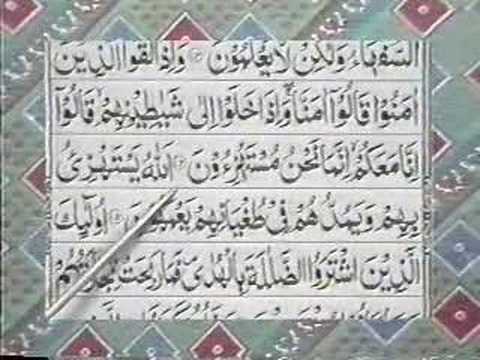 السُّفَهَآءُ وَلٰكِنْ لَّا يَعْلَمُوْنَ ۝ وَاِذَا لَقُوا الَّذِيْنَ
اٰمَنُوْا قَالُوْٓا اٰمَنَّا ۖ وَاِذَا خَلَوْا اِلٰى شَيٰطِيْنِهِمْ قَالُوْٓا
اِنَّا مَعَكُمْ اِنَّمَا نَحْنُ مُسْتَهْزِءُوْنَ ۝ اَللّٰهُ يَسْتَهْزِئُ
بِهِمْ وَيَمُدُّهُمْ فِيْ طُغْيَانِهِمْ يَعْمَهُوْنَ ۝ اُولٰٓئِكَ
الَّذِيْنَ اشْتَرَوُا الضَّلٰلَةَ بِالْهُدٰى فَمَا رَبِحَتْ تِّجَارَتُهُمْ